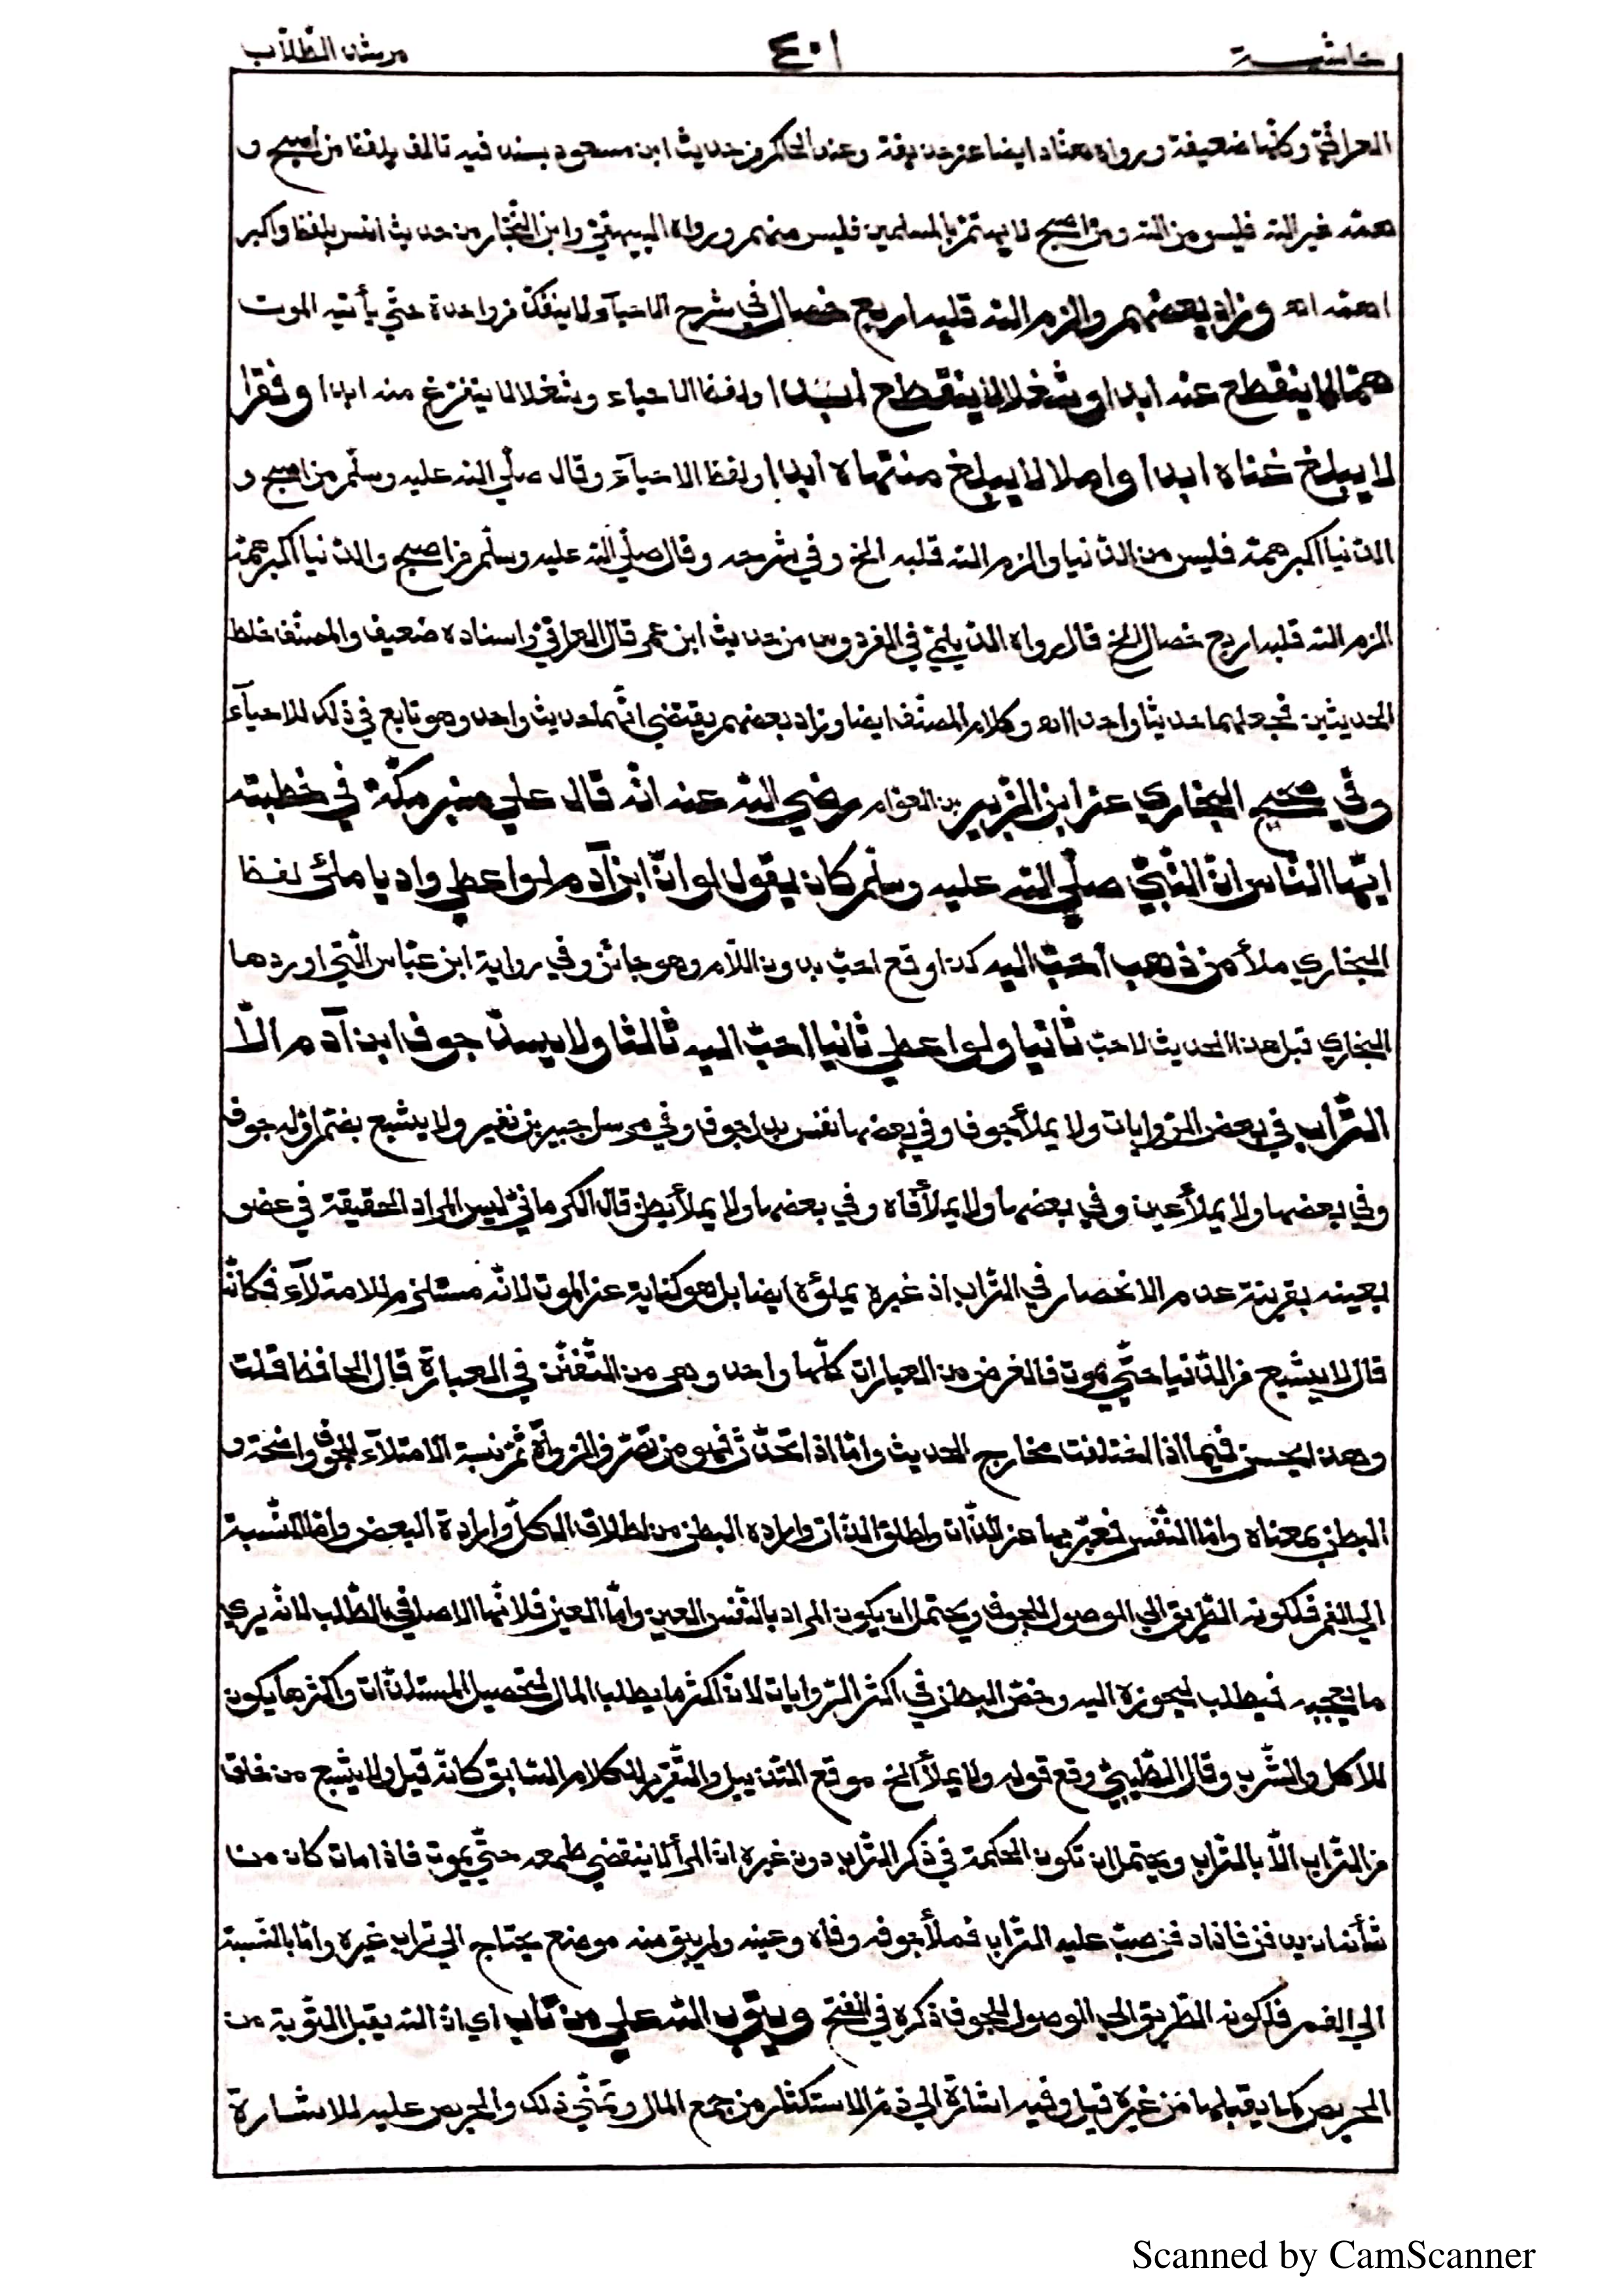 حاشية ٤٠١ مرشد الطّلاّب
العراقيّ وكلّها ضعيفة ورواه هنّاد ايضا عن حذيفة وعند الحاكم من حديث ابن مسعود بسند فيه تالف بلفظ من اصبح و
همّه غير الله فليس من الله ومن اصبح لا يهتمّ بالمسلمين فليس منهم ورواه البيهقيّ وابن النّجّار من حديث انس بلفظ واكبر
همّه اه وزاد بعضهم والزم الله قلبه اربع خصال في شرح الاحيآء لا ينفكّ من واحدة حتّي يأتيه الموت
همّا لا ينقطع عنه ابدا وشغلا لا ينقطع ابدا ولفظ الاحياء وشغلا لا يتفرّغ منه ابدا وفقرا
لا يبلغ غناه ابدا واملا لا يبلغ منتهاه ابدا ولفظ الاحيآء وقال صلّي الله عليه وسلّم من اصبح و
الدّنيا اكبر همّه فليس من الله والزم الله قلبه الخ وفي شرحه وقال صلّي الله عليه وسلّم من اصبح والدّنيا اكبر همّه
الزم الله قلبه اربع خصال الخ قال رواه الدّيلميّ في الفردوس من حديث ابن عمر قال العراقيّ واسناده ضعيف والمصنّف خلط
الحديثين فجعلهما حديثا واحدا اه وكلام المصنّف ايضا وزاد بعضهم يقتضي انّهما حديث واحد وهو تابع في ذلك للاحيآء
وفي صحيح البخاري عن ابن الزّبير بن العوّام رضي الله عنه انّه قال علي منبر مكّة في خطبته
ايّها النّاس انّ النّبيّ صلّي الله عليه وسلّم كان يقول لو انّ ابن آدم لو اعطي واديا ملئ لفظ
البخاري ملأ من ذهب احبّ اليه كذا وقع احبّ بدون اللّام وهو جائز وفي رواية ابن عبّاس الّتي اوردها
البخاري قبل هذا الحديث لاحبّ ثانيا ولو اعطي ثانيا احبّ اليه ثالثا ولا يسدّ جوف ابن آدم الّا
التّراب في بعض الرّوايات ولا يملأ جوف وفي بعضها نفس بدل جوف وفي مرسل جبير بن نفير ولا يشبع بضمّ اوّله جوف
وفي بعضها ولا يملأ عين وفي بعضها ولا يملأ فاه وفي بعضها ولا يملأ بطن قال الكرمانيّ ليس المراد الحقيقة في عضو
بعينه بقرينة عدم الانحصار في التّراب اذ غيره يملؤه ايضا بل هو كناية عن الموت لانّه مستلزم للامتلآء فكانّه
قال لا يشبع من الدّنيا حتّي يموت فالغرض من العبارات كلّها واحد وهي من التّفنّن في العبارة قال الحافظ قلت
وهذا يحسن فيما اذا اختلفت مخارج الحديث وامّا اذا اتّحدت فهو من تصرّف الرّواة ثمّ نسبة الامتلآء للجوف واضحة و
البطن بمعناه وامّا النّفس فعبّر بها عن الذّات واطلق الذّات واراده البطن من اطلاق الكلّ وارادة البعض وامّا النّسبة
الي الفم فلكونه الطّريق الي الوصول للجوف ويحتمل ان يكون المراد بالنّفس العين وامّا العين فلانّها الاصل في الطّلب لانّه يري
ما يعجبه فيطلب ليحوزه اليه وخصّ البطن في اكثر الرّوايات لانّ اكثر ما يطلب المال لتحصيل المستلذّات واكثرها يكون
للاكل والشّرب وقال الطّيبيّ وقع قوله ولا يملأ الخ موقع التّذييل والتّقرير للكلام السّابق كانّه قيل ولا يشبع من خلق
من التّراب الّا بالتّراب ويحتمل ان تكون الحكمة في ذكر التّراب دون غيره انّ المرأ لا ينقضي طمعه حتّي يموت فاذا مات كان من
شأنه ان يدفن فاذا دفن صبّ عليه التّراب فملأ جوفه وفاه وعينه ولم يبق منه موضع يحتاج الي تراب غيره وامّا بالنّسبة
الي الفم فلكونه الطّريق الي الوصول للجوف ذكره في الفتح ويتوب الله علي من تاب اي انّ الله يقبل التّوبة من
الحريص كما يقبلها من غيره قيل وفيه اشارة الي ذمّ الاستكثار من جمع المال وتمنّي ذلك والحرص عليه للاشارة
Scanned by CamScanner